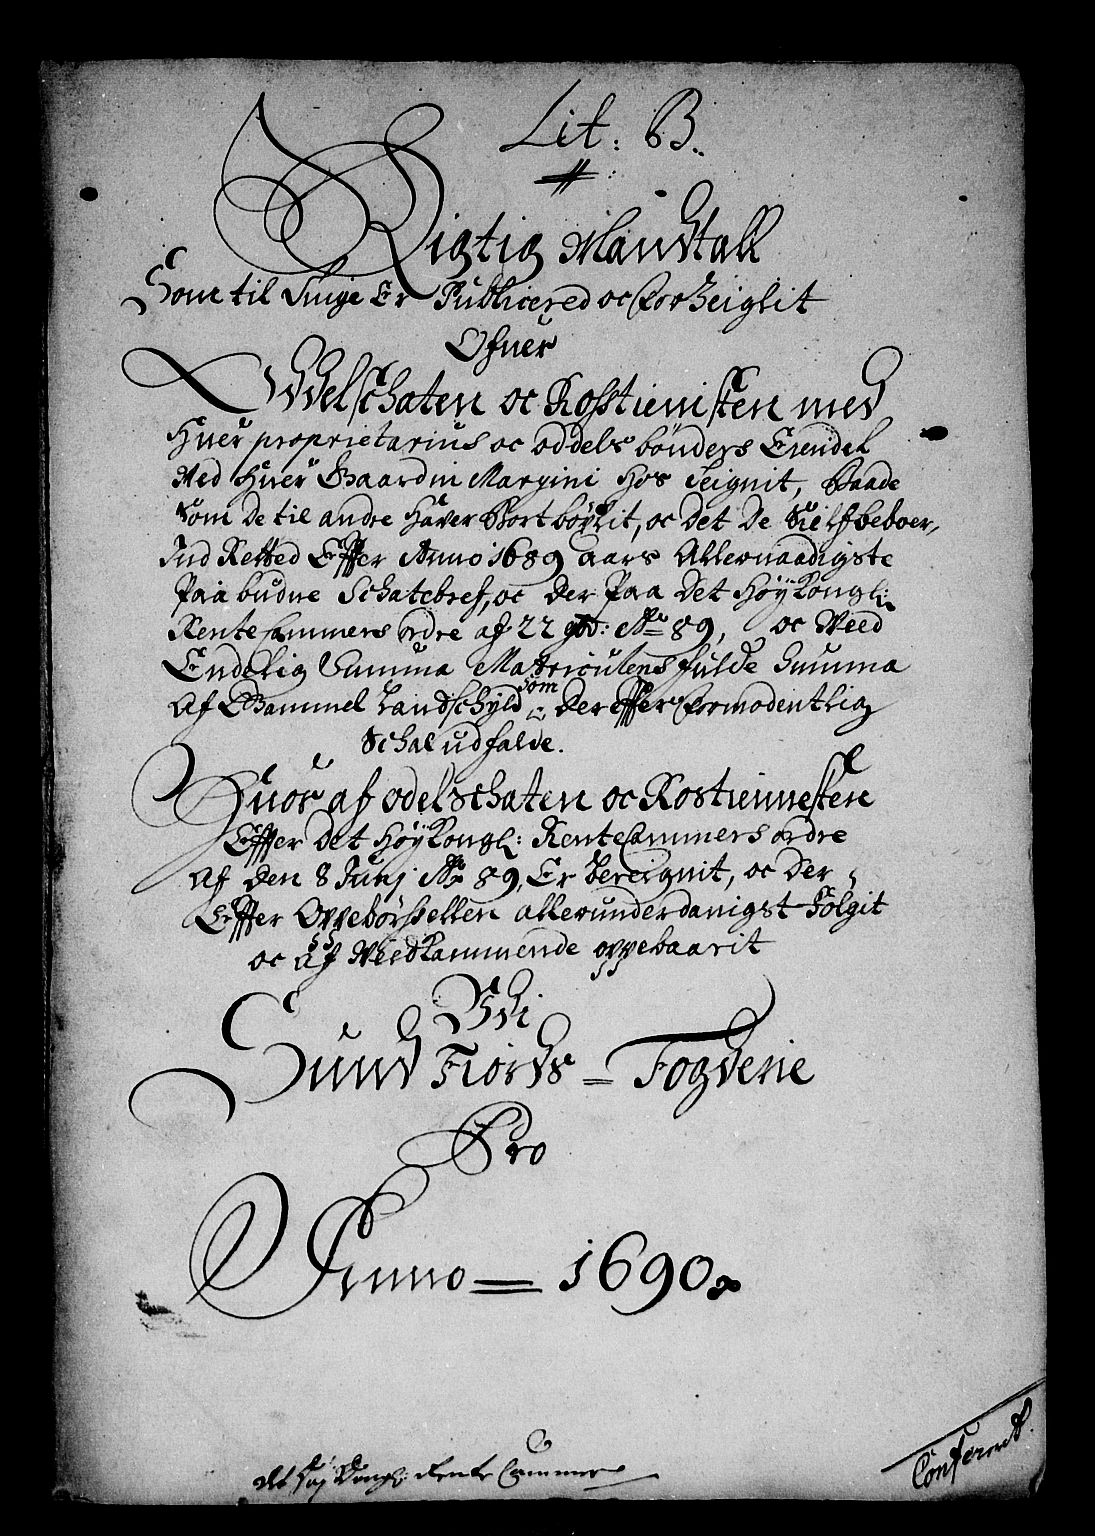 Lit: B.
Rigtig Mandtall
Som til Tinge Er Publicered oc Forseiglit
Ofuer
Oddelschaten oc Rosstienisten med
Huer proprietarius oc oddels bønders Eiendel
Med Huer Gaard in Margini Hos Teignit, Baade
Som De til andre Hafver Bortbøxlit, oc det De Sielf beboer,
Ind Retted Effter Anno 1689 aars Allernaadigste
Paabudne Schatebref, oc der Paa Det Høy Kongl:
Rente Cammers ordre af 22 gbr: Ao 89, oc Med
Endelig Summa Matriculens fulde Summa
Af Gammel Landschyld som Der Effter Formodentlig
Schal udfalde.
Huor af odelschaten oc Rostiennesten
Effter Det Høy Kongl: Rente Cammers ordre
Af Den 8 Junj Ao 89, Er bereignit, oc Der
Effter Oppebørsellen allerunderdanigst Følgit
oc af Vedkammende oppebaarit
Udi
Sund Fiords = Fogderie
Pro
Anno = 1690.
Det Høj Kongl: Rente Cammer
Confererit.